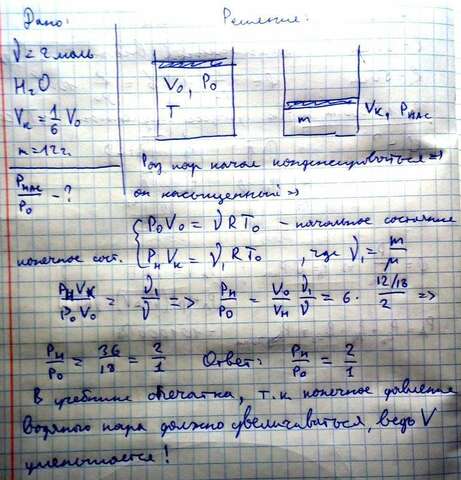 Дано:
Решение:
ν = 2 моль
H₂O
Vк = 1/6 V₀
m = 12 г.
Pнас/P₀ - ?
V₀, P₀
T
m
Vк, Pнас
Раз пар начал конденсироваться =>
он насыщенный =>
P₀V₀ = νRT₀ - начальное состояние
конечное сост. Pн Vк = ν₁RT₀, где ν₁ = m/μ
PнVк/P₀V₀ = ν₁/ν => Pн/P₀ = V₀/Vн ν₁/ν = 6 · (12/18)/2 =>
Pн/P₀ = 36/18 = 2/1 Ответ: Pн/P₀ = 2/1
В учебнике опечатка, т.к конечное давление
водяного пара должно увеличиваться, ведь V
уменьшается!